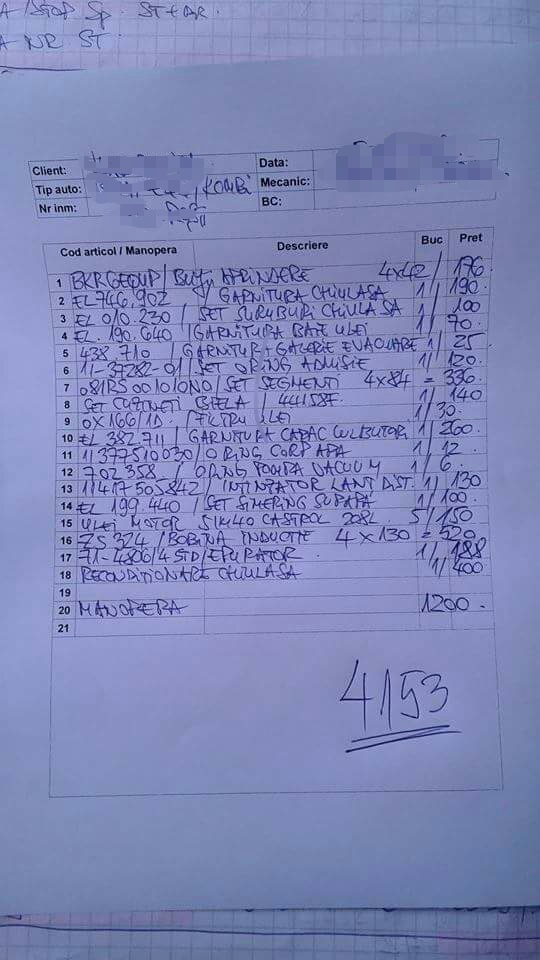 A /STOP Sp. ST+DR.
A NR ST.
Client:
Data:
Tip auto: /KOMBI
Mecanic:
Nr inm:
BC:
Cod articol / Manopera Descriere Buc Pret
1 BKR6EQUP / BUJII APRINDERE 4x42 / 176
2 EL 746.902 / GARNITURA CHIULASA 1/ 190
3 EL 010.230 / SET SURUBURI CHIULASA 1/ 100
4 EL. 190.640 / GARNITURA BAIE ULEI 1/ 70
5 438.710 / GARNITURI GALERIE EVACUARE 1/ 25
6 11-37282-01 / SET ORING ADMISIE 1/ 120.
7 081RS001010N0 / SET SEGMENTI 4x84 = 336
8 SET CUZINETI BIELA / 1/ 140
9 OX166/1D / FILTRU ULEI 1/ 30.
10 EL 382.711 / GARNITURA CAPAC CULBUTORI 1/ 260
11 11377510030 / ORING CORP APA 1/ 12
12 702358 / ORING POMPA VACUUM 1/ 6.
13 11417505842 / INTINZATOR LANT DIST. 1/ 130
14 EL 199.440 / SET SIMERING SUPAPA 1/ 100.
15 ULEI MOTOR 5W40 CASTROL 5/ 150
16 75374 / BOBINA INDUCTIE 4 x 130 = 520
17 71-4806/4 STD / EPURATOR 1/ 188
18 RECONDITIONARE CHIULASA 1/ 400
19
20 MANOPERA 1200.
21
4153